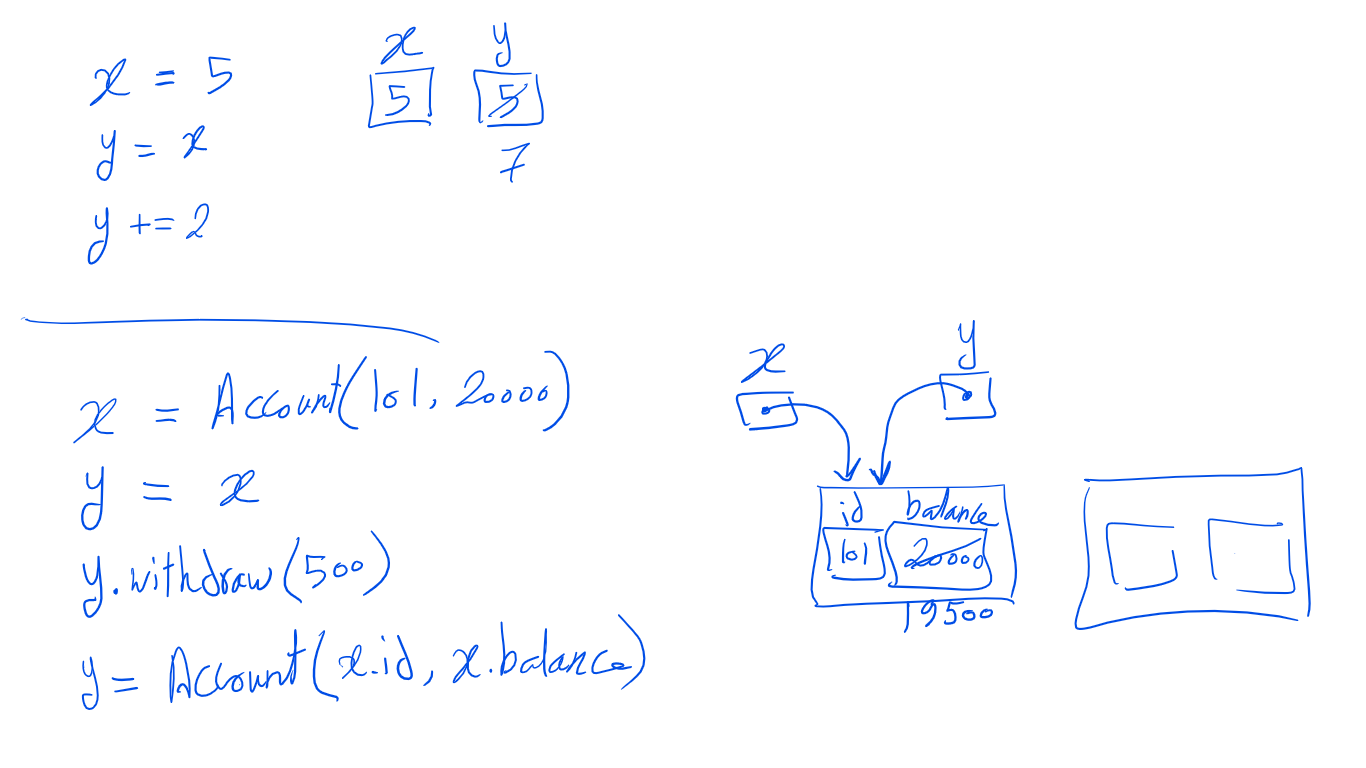 x = 5
y = x
y += 2
x y
5 5
7
x = Account(101, 20000)
y = x
y.withdraw(500)
y = Account(x.id, x.balance)
x y
id balance
101 20000
19500